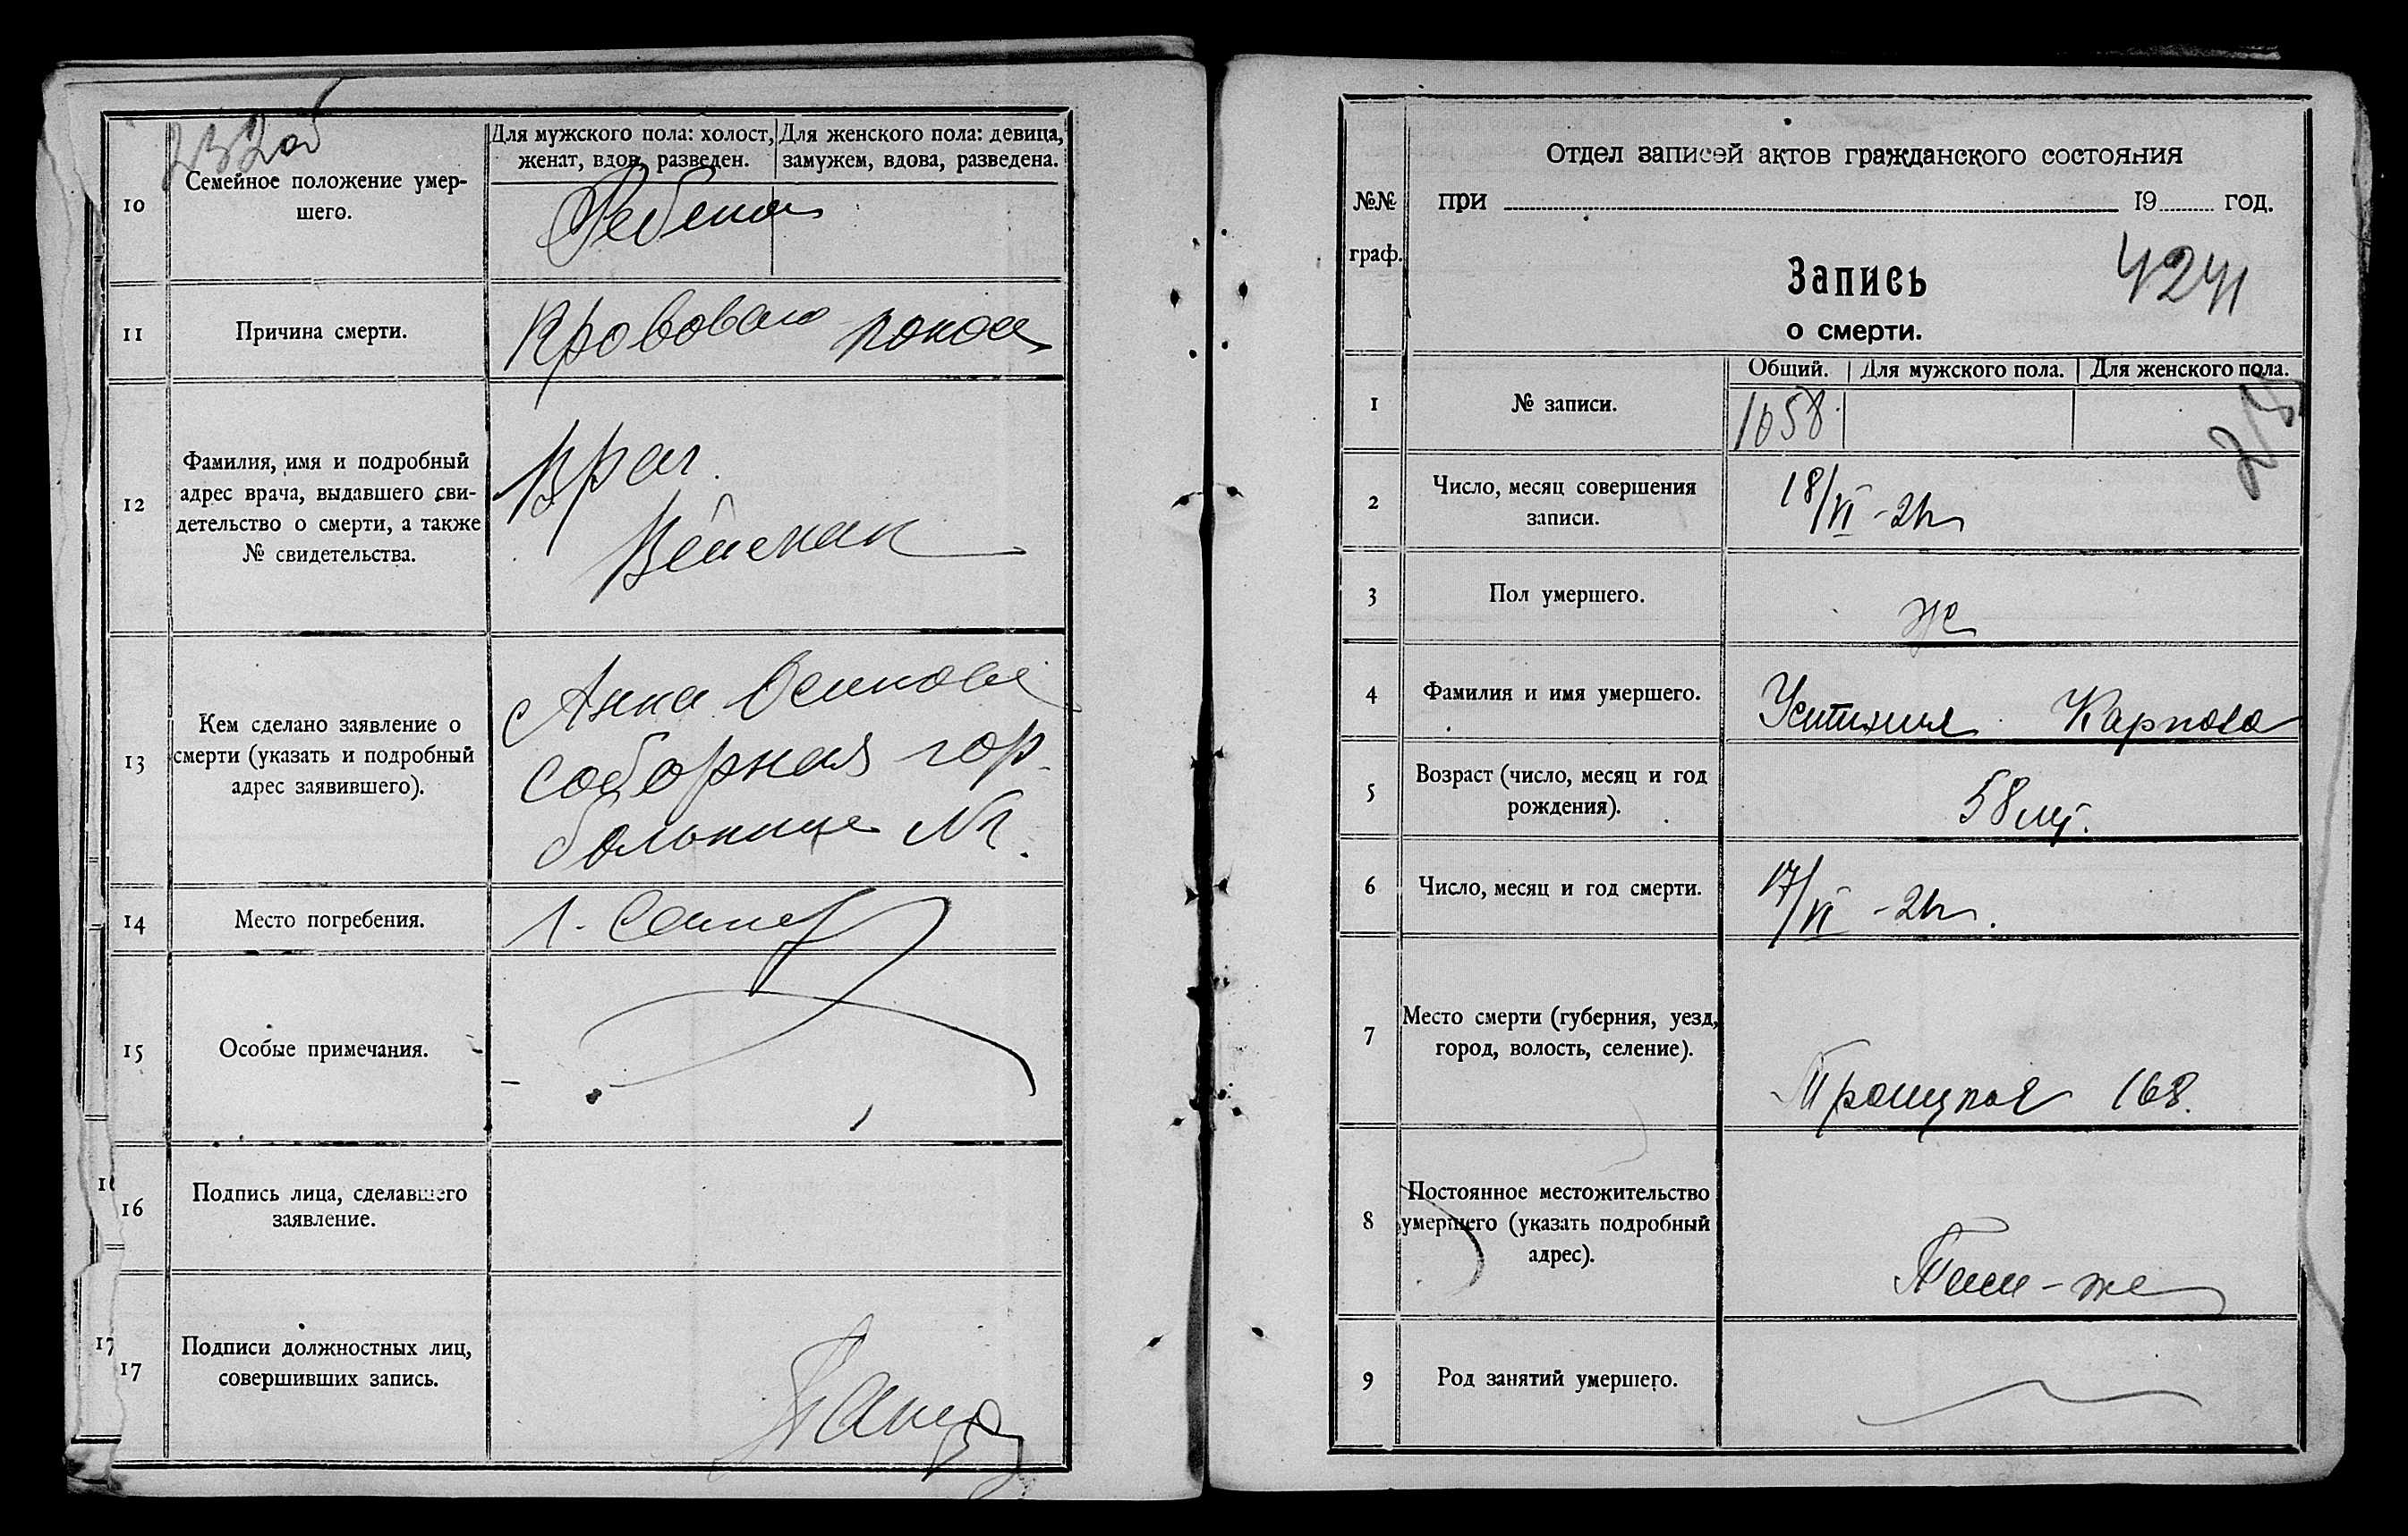 232об
10
Семейное положение умер-
шего.
Для мужского пола: холост,
женат, вдов, разведен.
Для женского пола: девица,
замужем, вдова, разведена.
Ребенок
11
Причина смерти.
Кровавого поноса
12
Фамилия, имя и подробный
адрес врача, выдавшего сви-
детельство о смерти, а также
№ свидетельства.
Врач
Вейсман
13
Кем сделано заявление о
смерти (указать и подробный
адрес заявившего).
Анна Осипова
соборная гор.
больница №
14
Место погребения.
15
Особые примечания.
16
Подпись лица, сделавшего
заявление.
17
Подписи должностных лиц,
совершивших запись.
№№
граф.
Отдел записей актов гражданского состояния
при 19 год.
Запись
о смерти.
Общий. Для мужского пола. Для женского пола.
1
№ записи.
1658
2
Число, месяц совершения
записи.
18/VI
3
Пол умершего.
ж
4
Фамилия и имя умершего.
Устиния Карпова
5
Возраст (число, месяц и год
рождения).
58 лет.
6
Число, месяц и год смерти.
17/VI
7
Место смерти (губерния, уезд,
город, волость, селение).
Троицкая 168.
8
Постоянное местожительство
умершего (указать подробный
адрес).
Там-же
9
Род занятий умершего.